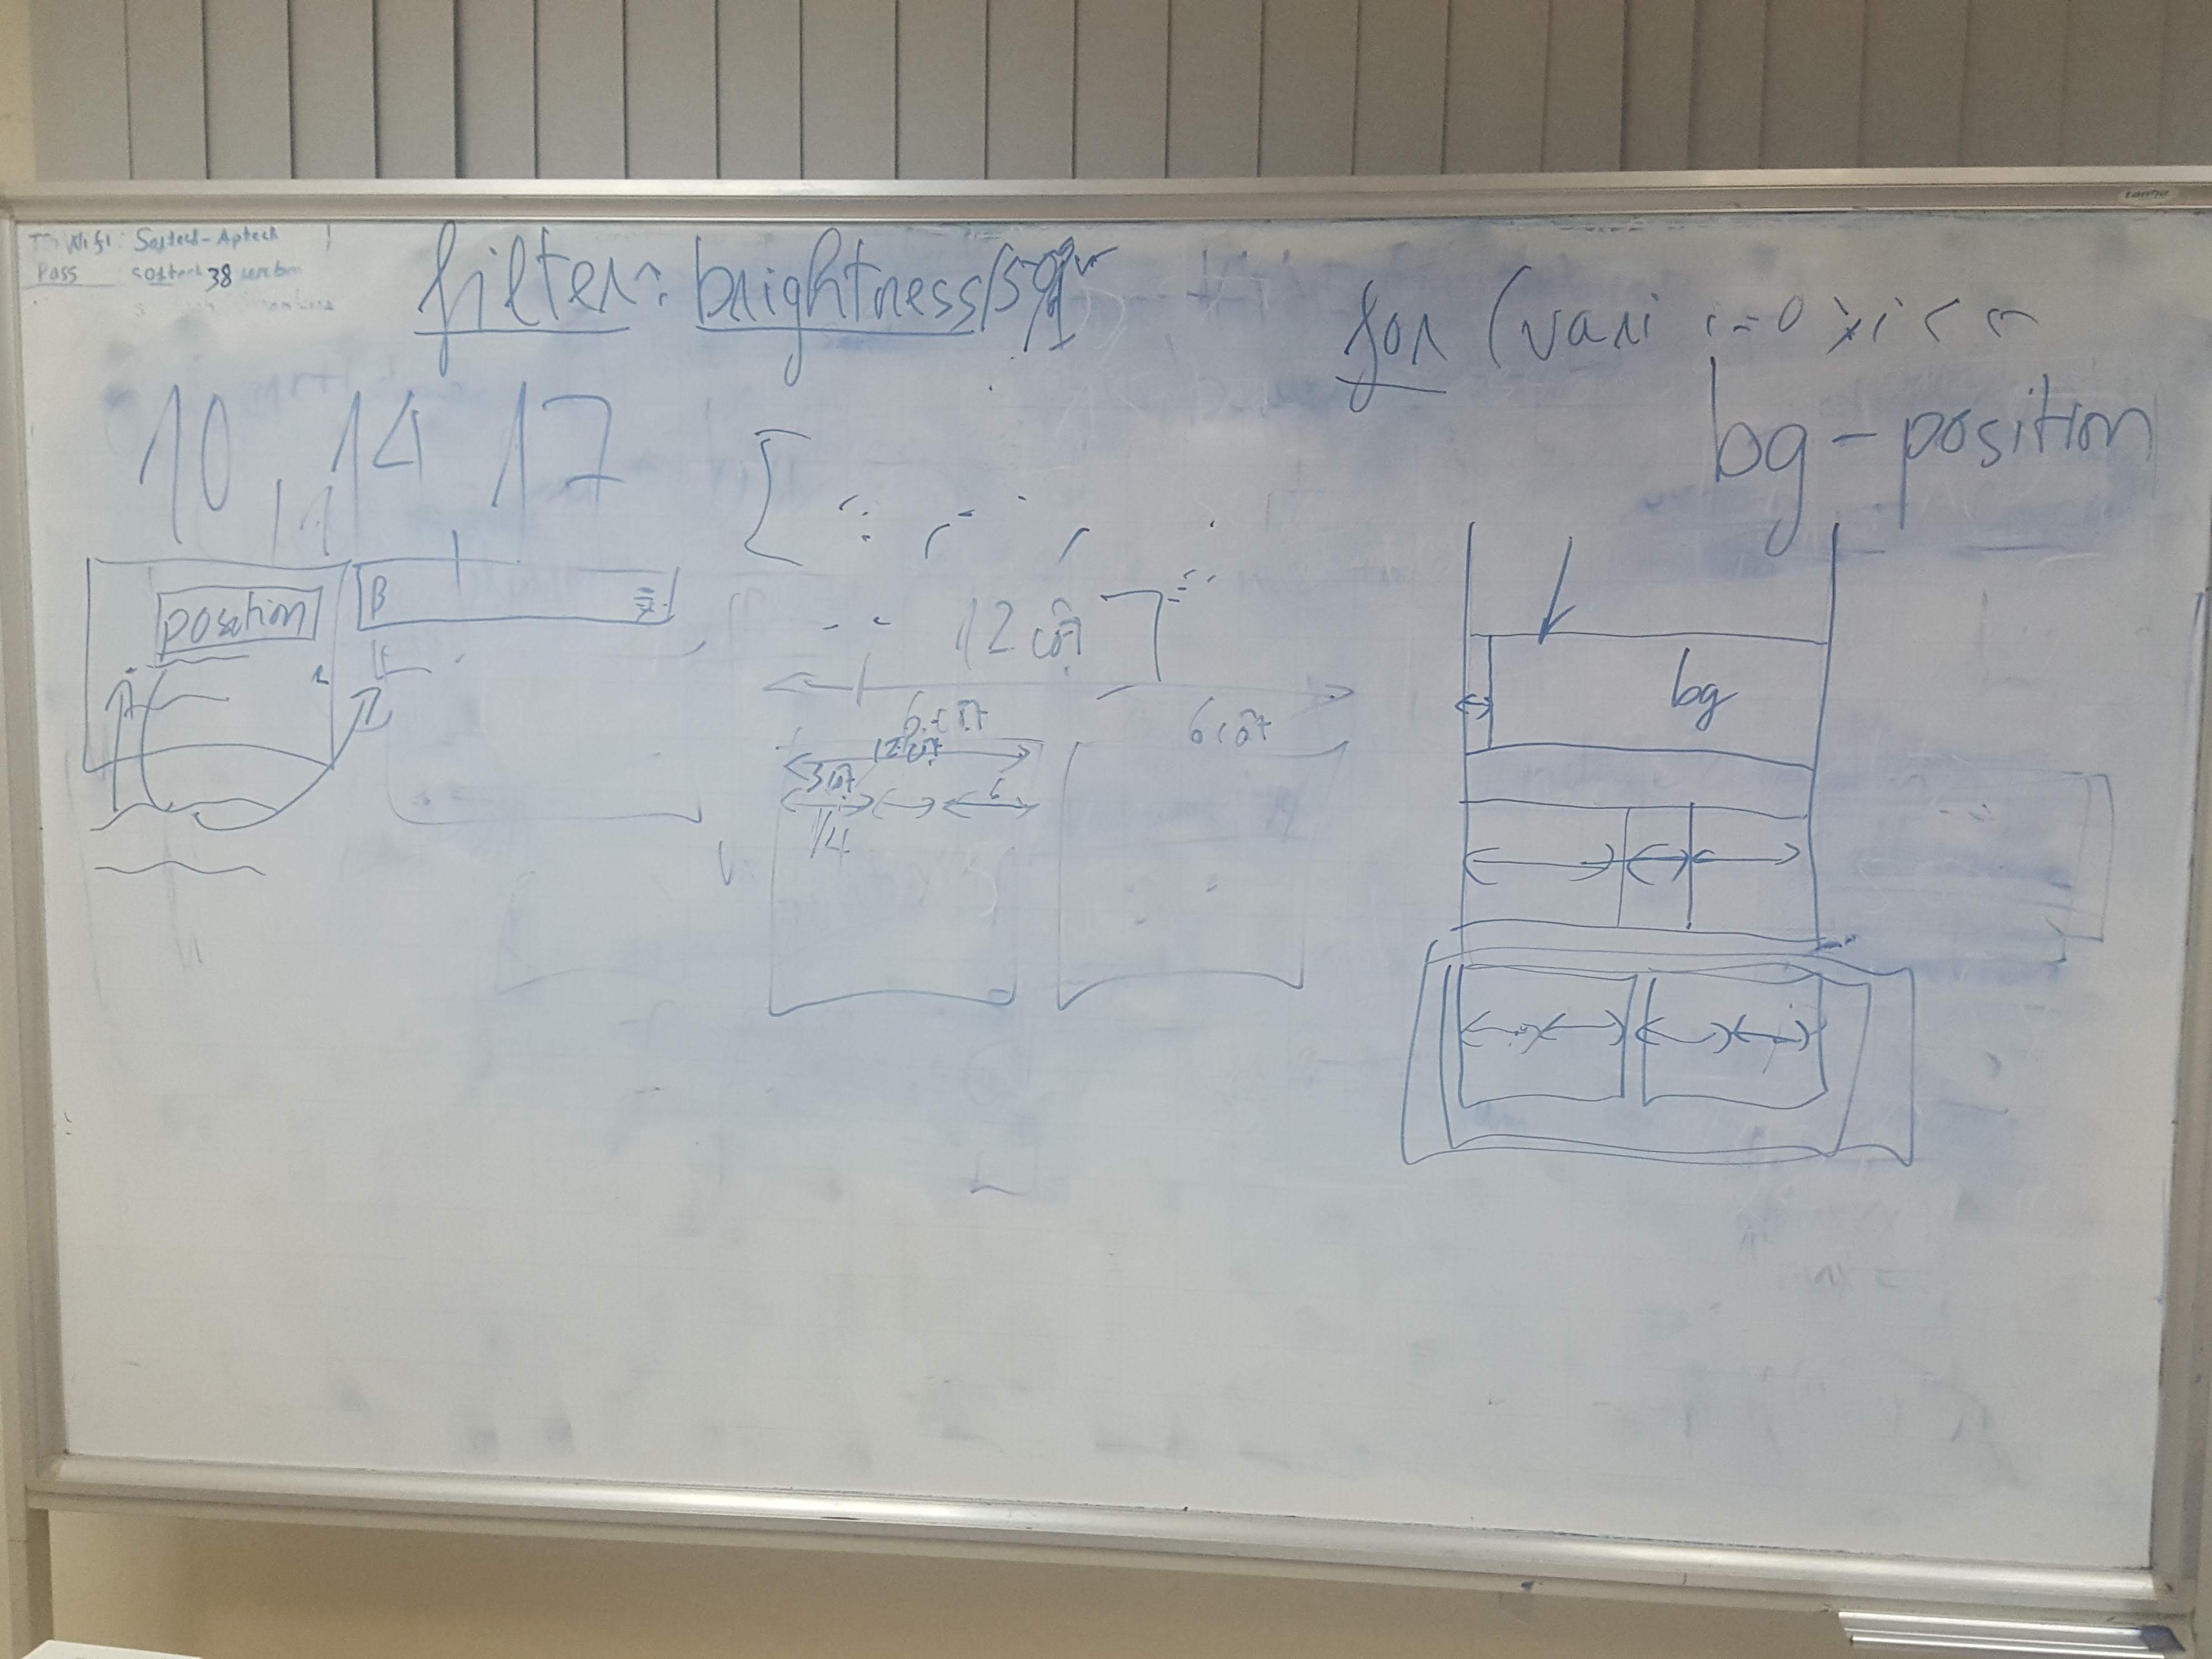 Wifi: Softech-Aptech
Pass softech 38
filter: brightness
for (var i i=0 ; i <
bg-position
10 14 17
position
B
12 cột
6 cột
6 cột
12 cột
3 cột
6
1/4
bg